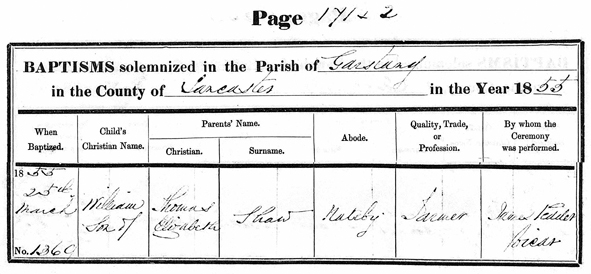 Page 171 & 2
BAPTISMS solemnized in the Parish of Garstang
in the County of Lancaster in the Year 1855
When Baptized. Child's Christian Name. Parents' Name. Christian. Surname. Abode. Quality, Trade, or Profession. By whom the Ceremony was performed.
1855
25th March
No. 1369
William
Son of
Thomas
Elizabeth
Shaw
Nateby
Farmer
Vicar